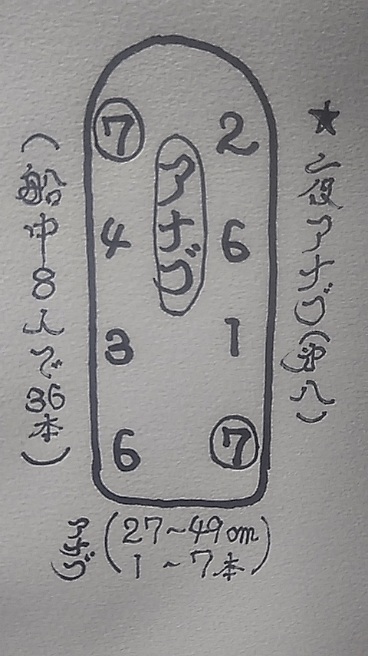 ★夜アナゴ
⑦ 2
4 6
3 1
6 ⑦
アナゴ
(船中8人で36本)
アナゴ
(27~49cm
1~7本)